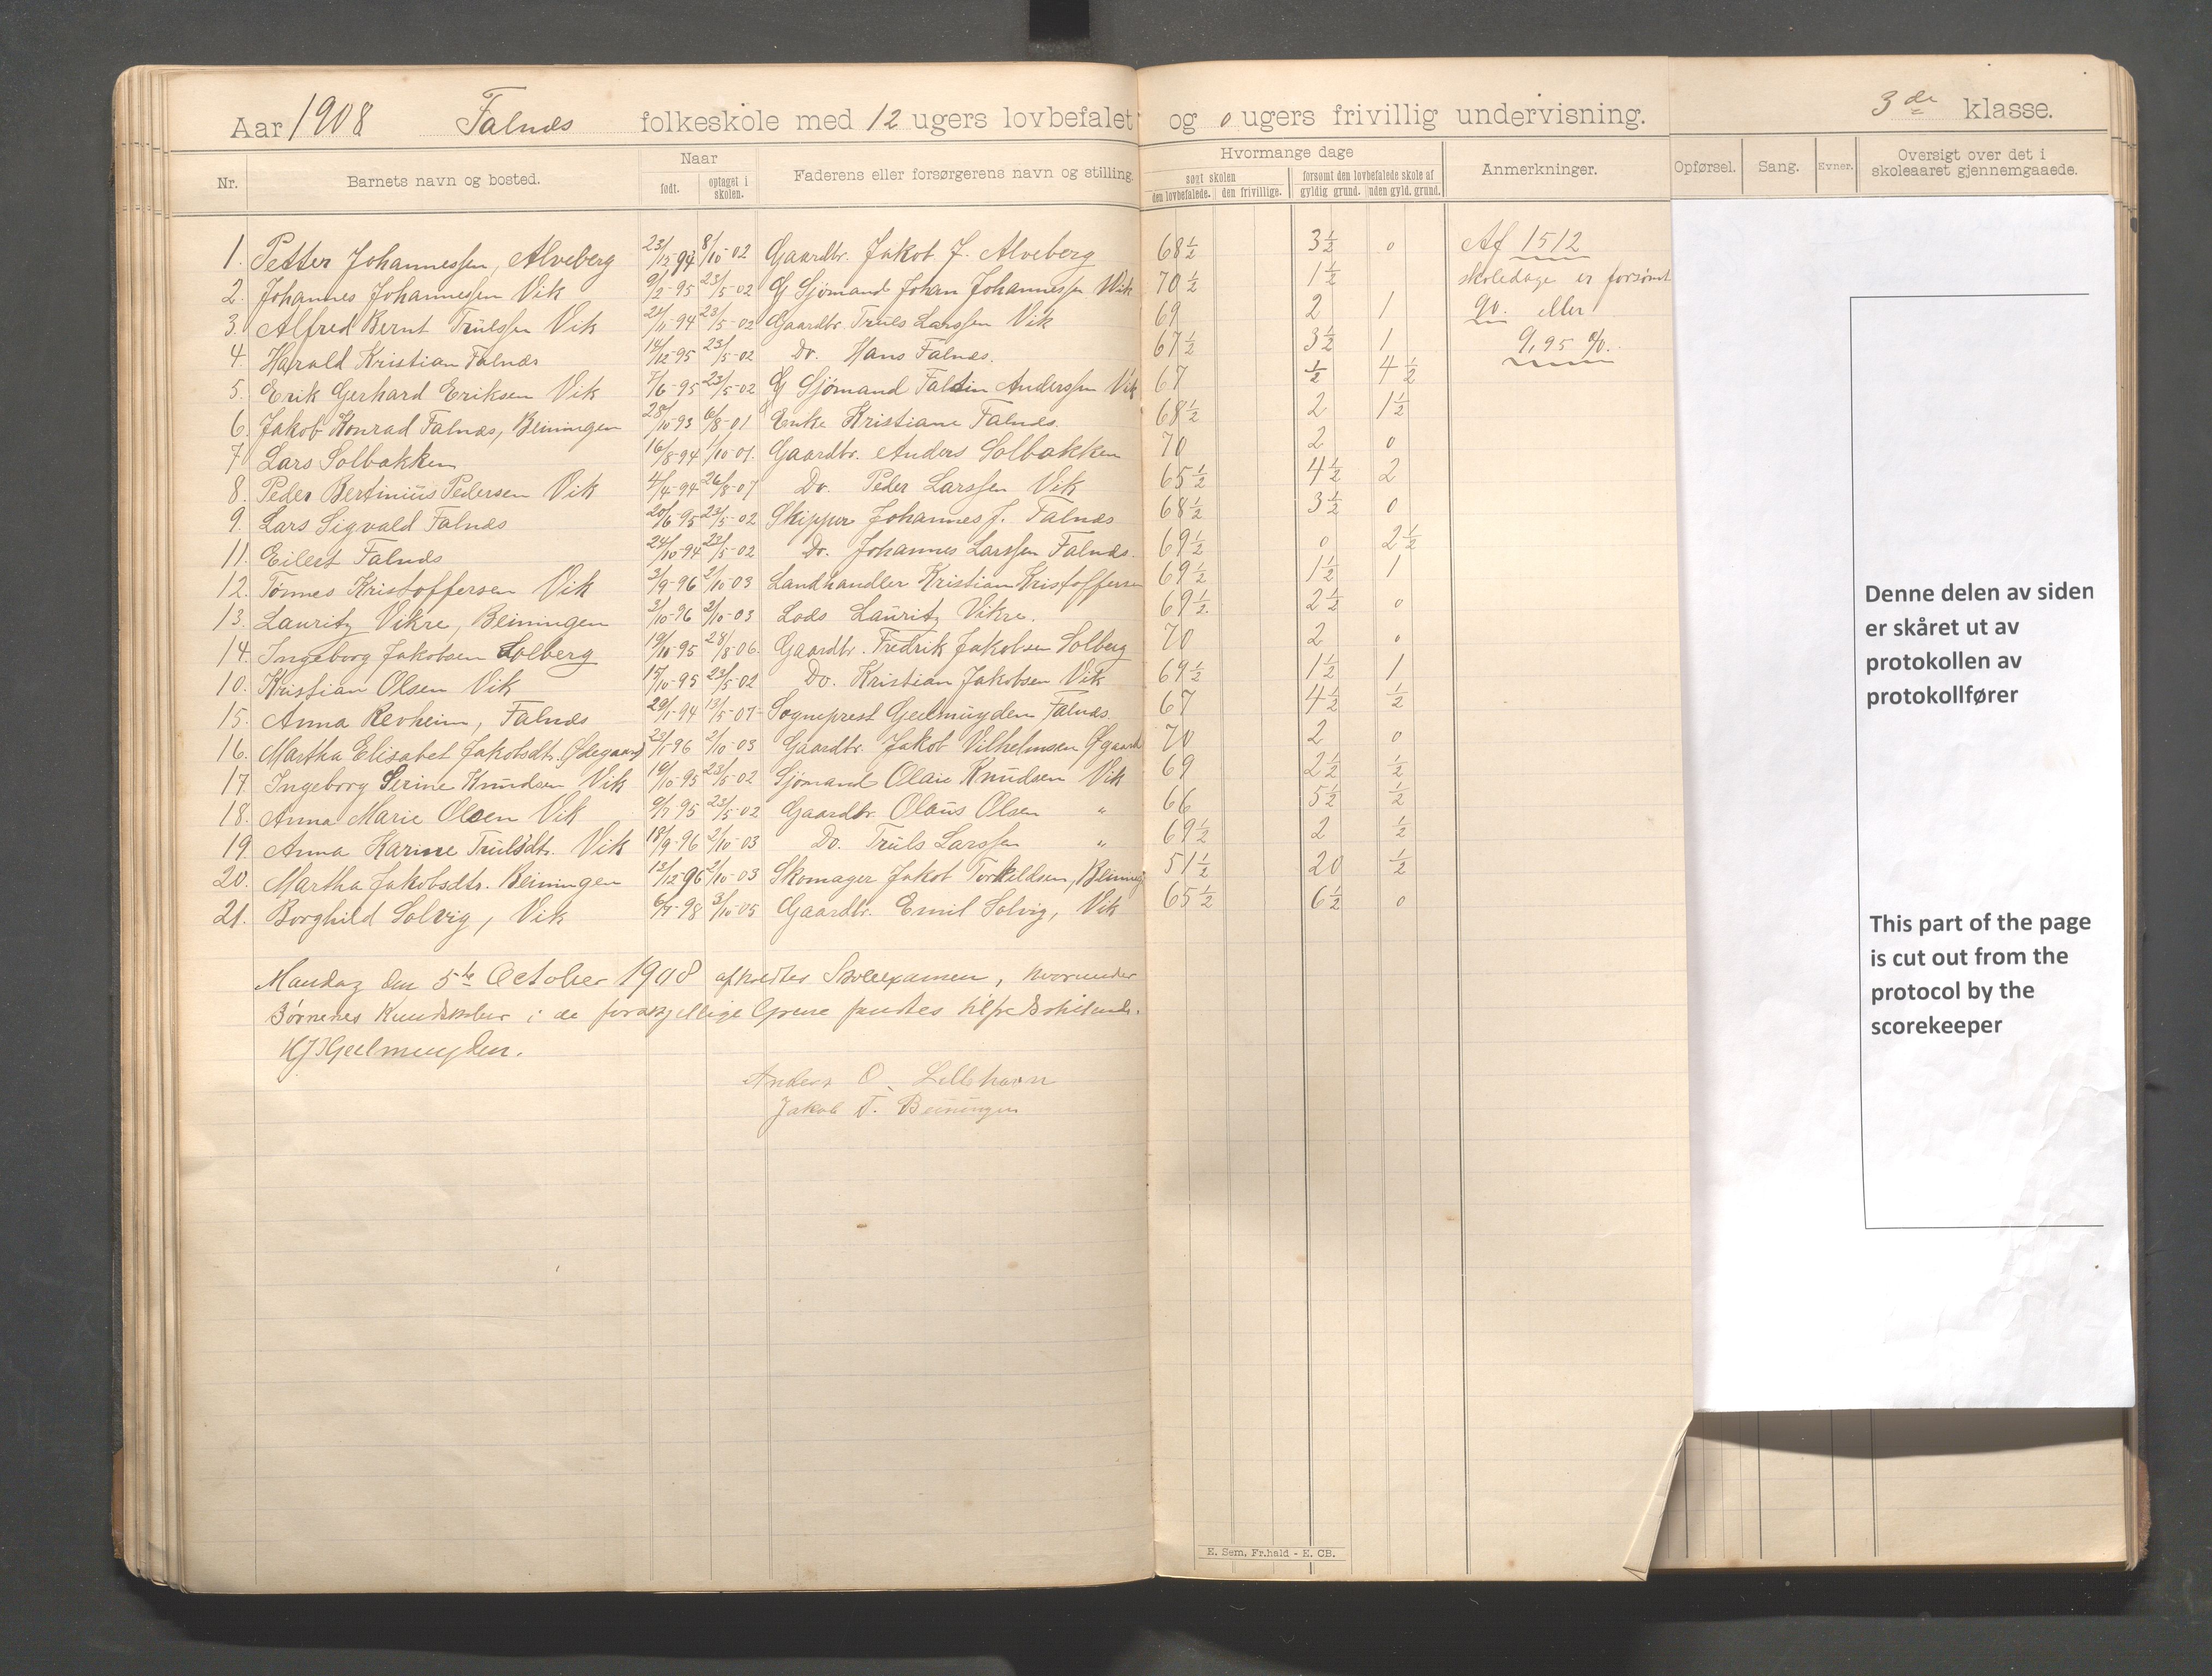 Aar 1908 Falnæs folkeskole med 12 ugers lovbefalet og 0 ugers frivillig undervisning. 3de klasse.
Nr. Barnets navn og bosted. Naar født. optaget i skolen. Faderens eller forsørgerens navn og stilling. Hvormange dage søgt skolen den lovbefalede. den frivillige. forsømt den lovbefalede skole af gyldig grund. uden gyld. grund. Anmerkninger. Opførsel. Sang. Evner. Oversigt over det i skoleaaret gjennemgaaede.
1. Petter Johannessen, Alveberg 23/12-94 8/10-02 Gaardbr. Jakob J. Alveberg 68½ 3½ 0 Af 1512
2. Johannes Johannessen Vik 9/2-95 23/5-02 G Sjømand Johan Johannessen Vik 70½ 1½ skoledage er forsømt
3. Alfred Bernt Trulssen Vik 21/11-94 23/5-02 Gaardbr. Truls Larssen Vik 69 2 1 90. eller
4. Harald Kristian Falnæs 14/12-95 23/5-02 Do. Hans Falnæs. 67½ 3½ 1 9,95 %.
5. Erik Gerhard Eriksen Vik 7/6-95 23/5-02 G Sjømand Faltin Anderssen Vik 67 ½ 4½
6. Jakob Konrad Falnæs, Beiningen 28/10-93 6/8-01 Enke Kristiane Falnæs. 68½ 2 1½
7 Lars Solbakken 16/8-94 1/10-01. Gaardbr. Anders Solbakken 70 2 0
8. Peder Bertinius Pedersen Vik 4/4-94 26/8-07 Do. Peder Larssen Vik 65½ 4½ 2
9. Lars Sigvald Falnæs 20/6-95 23/5-02 Skipper Johannes J. Falnæs 68½ 3½ 0
11. Eilert Falnæs 24/10-94 23/5-02 Do. Johannes Larssen Falnæs. 69½ 0 2½
12. Tønnes Kristoffersen Vik 3/9-96 2/10-03 Landhandler Kristian Kristoffersen 69½ 1½ 1
13. Lauritz Vikre, Beiningen 3/10-96 2/10-03 Lods Lauritz Vikre. 69½ 2½ 0
14. Ingeborg Jakobsen Solberg 19/10-95 28/8-06. Gaardbr. Fredrik Jakobsen Solberg 70 2 0
10. Kristian Olsen Vik 15/10-95 23/5-02 Do. Kristian Jakobsen Vik 69½ 1½ 1
15. Anna Revheim, Falnæs 29/1-94 13/5-07 Sogneprest Geelmuyden Falnæs. 67 4½ ½
16. Martha Elisabet Jakobsdt. Ødegaard 23/1-96 2/10-03 Gaardbr. Jakob Vilhelmsen Øgaard 70 2 0
17. Ingeborg Serine Knudsen Vik 19/10-95 23/5-02 Sjømand Olaie Knudsen Vik 69 2½ ½
18. Anna Marie Olsen Vik 9/7-95 23/5-02 Gaardbr. Olaus Olsen " 66 5½ ½
19. Anna Karine Trulsdt. Vik 18/9-96 2/10-03 Do. Truls Larssen " 69½ 2 ½
20. Martha Jakobsdtr. Beiningen 13/12-96 2/10-03 Skomager Jakob Torkildsen, 51½ 20 ½
21. Borghild Solvig, Vik 6/7-98 3/10-05 Gaardbr. Emil Solvig, Vik 65½ 6½ 0
Mandag den 5te October 1908 afholdtes Skoleexamen, hvorunder
Børnenes Kundskaber i de forskjellige Grene fandtes tilfredsstillende.
Geelmuyden.
Anders O. Lillehavn
Jakob T. Beiningen
E. Sem, Fr.hald - E. CB.
Denne delen av siden
er skåret ut av
protokollen av
protokollfører
This part of the page
is cut out from the
protocol by the
scorekeeper